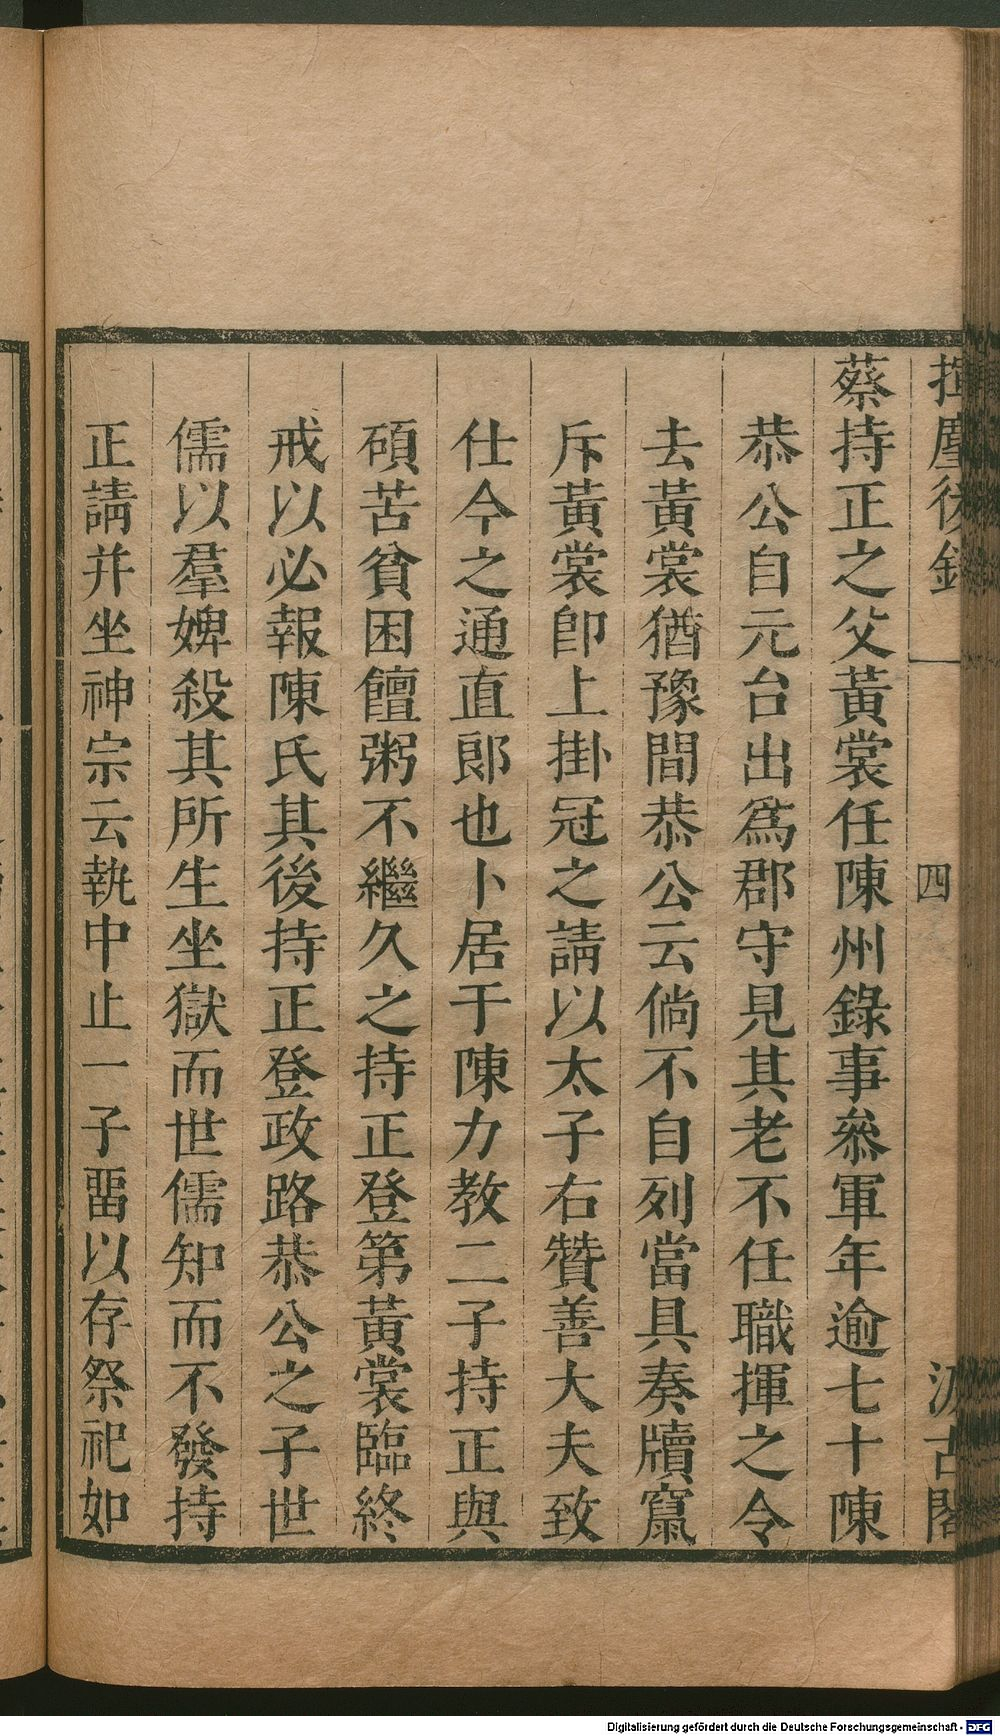 揮麈後錄
四
汲古閣
蔡持正之父黃裳任陳州錄事叅軍年逾七十陳
恭公自元台出爲郡守見其老不任職揮之令
去黃裳猶豫間恭公云倘不自列當具奏牘竄
斥黃裳卽上掛冠之請以太子右贊善大夫致
仕今之通直郎也卜居于陳力教二子持正與
碩苦貧困饘粥不繼久之持正登第黃裳臨終
戒以必報陳氏其後持正登政路恭公之子世
儒以羣婢殺其所生坐獄而世儒知而不發持
正請幷坐神宗云執中止一子畱以存祭祀如
Digitalisierung gefördert durch die Deutsche Forschungsgemeinschaft - DFG